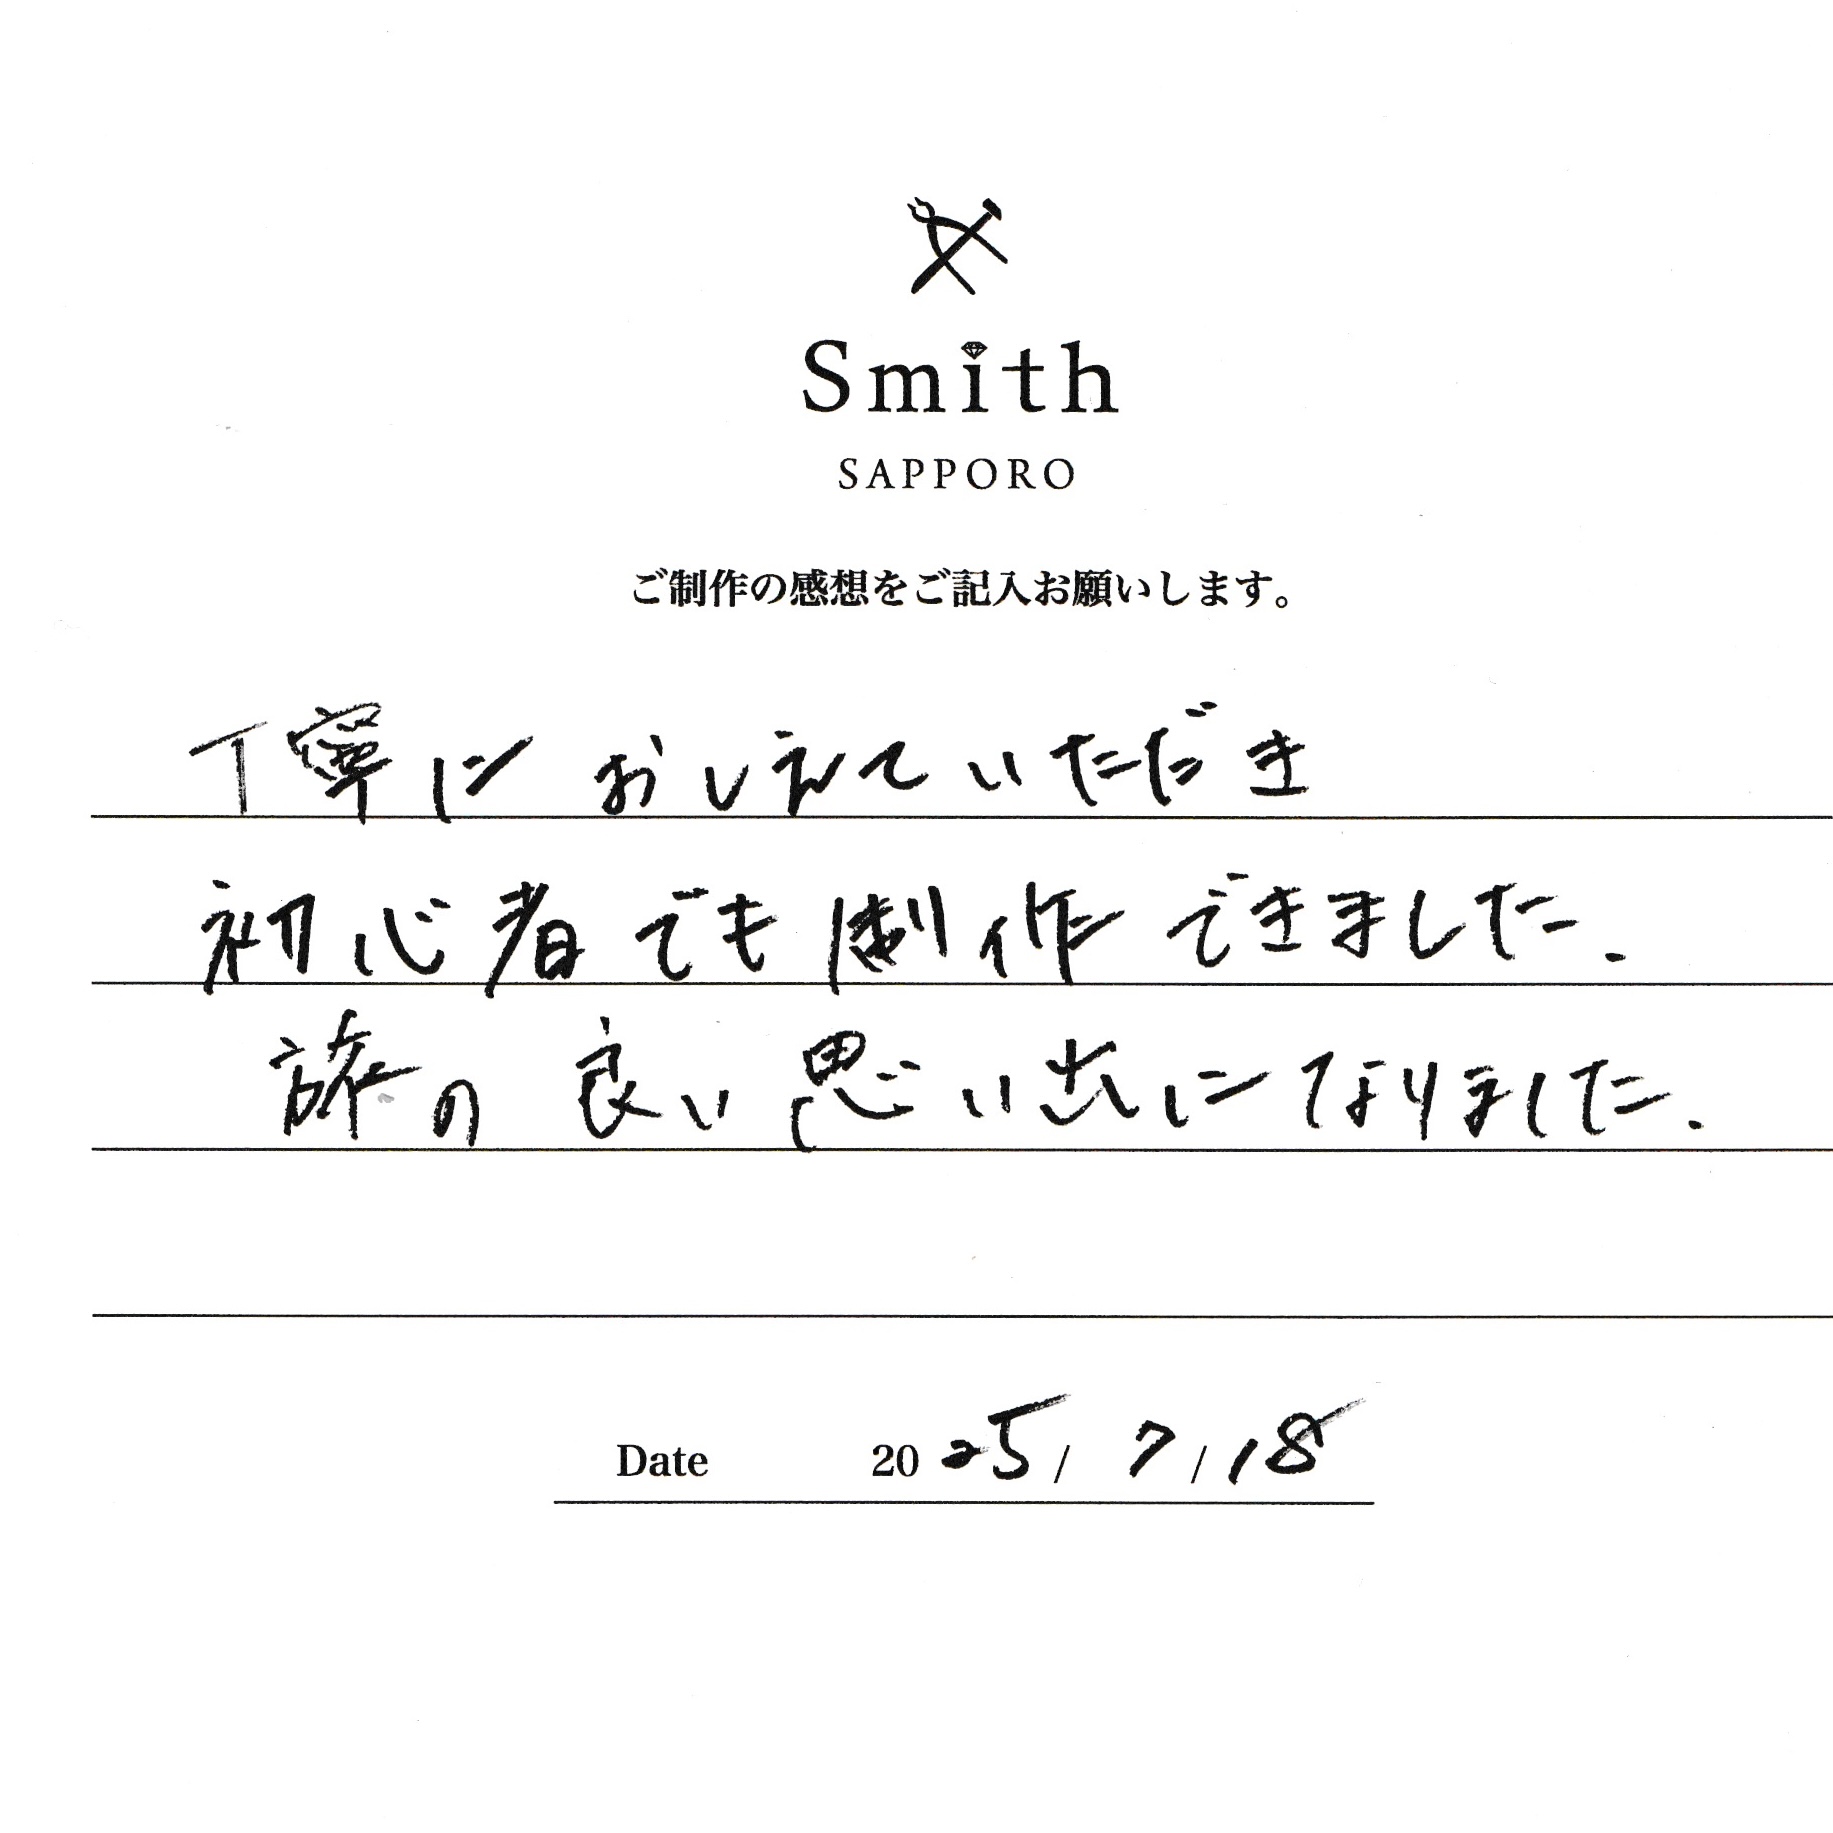 Smith
SAPPORO
ご制作の感想をご記入お願いします。
丁寧におしえていただき
初心者でも制作できました.
旅の良い思い出になりました.
Date 2025/7/18